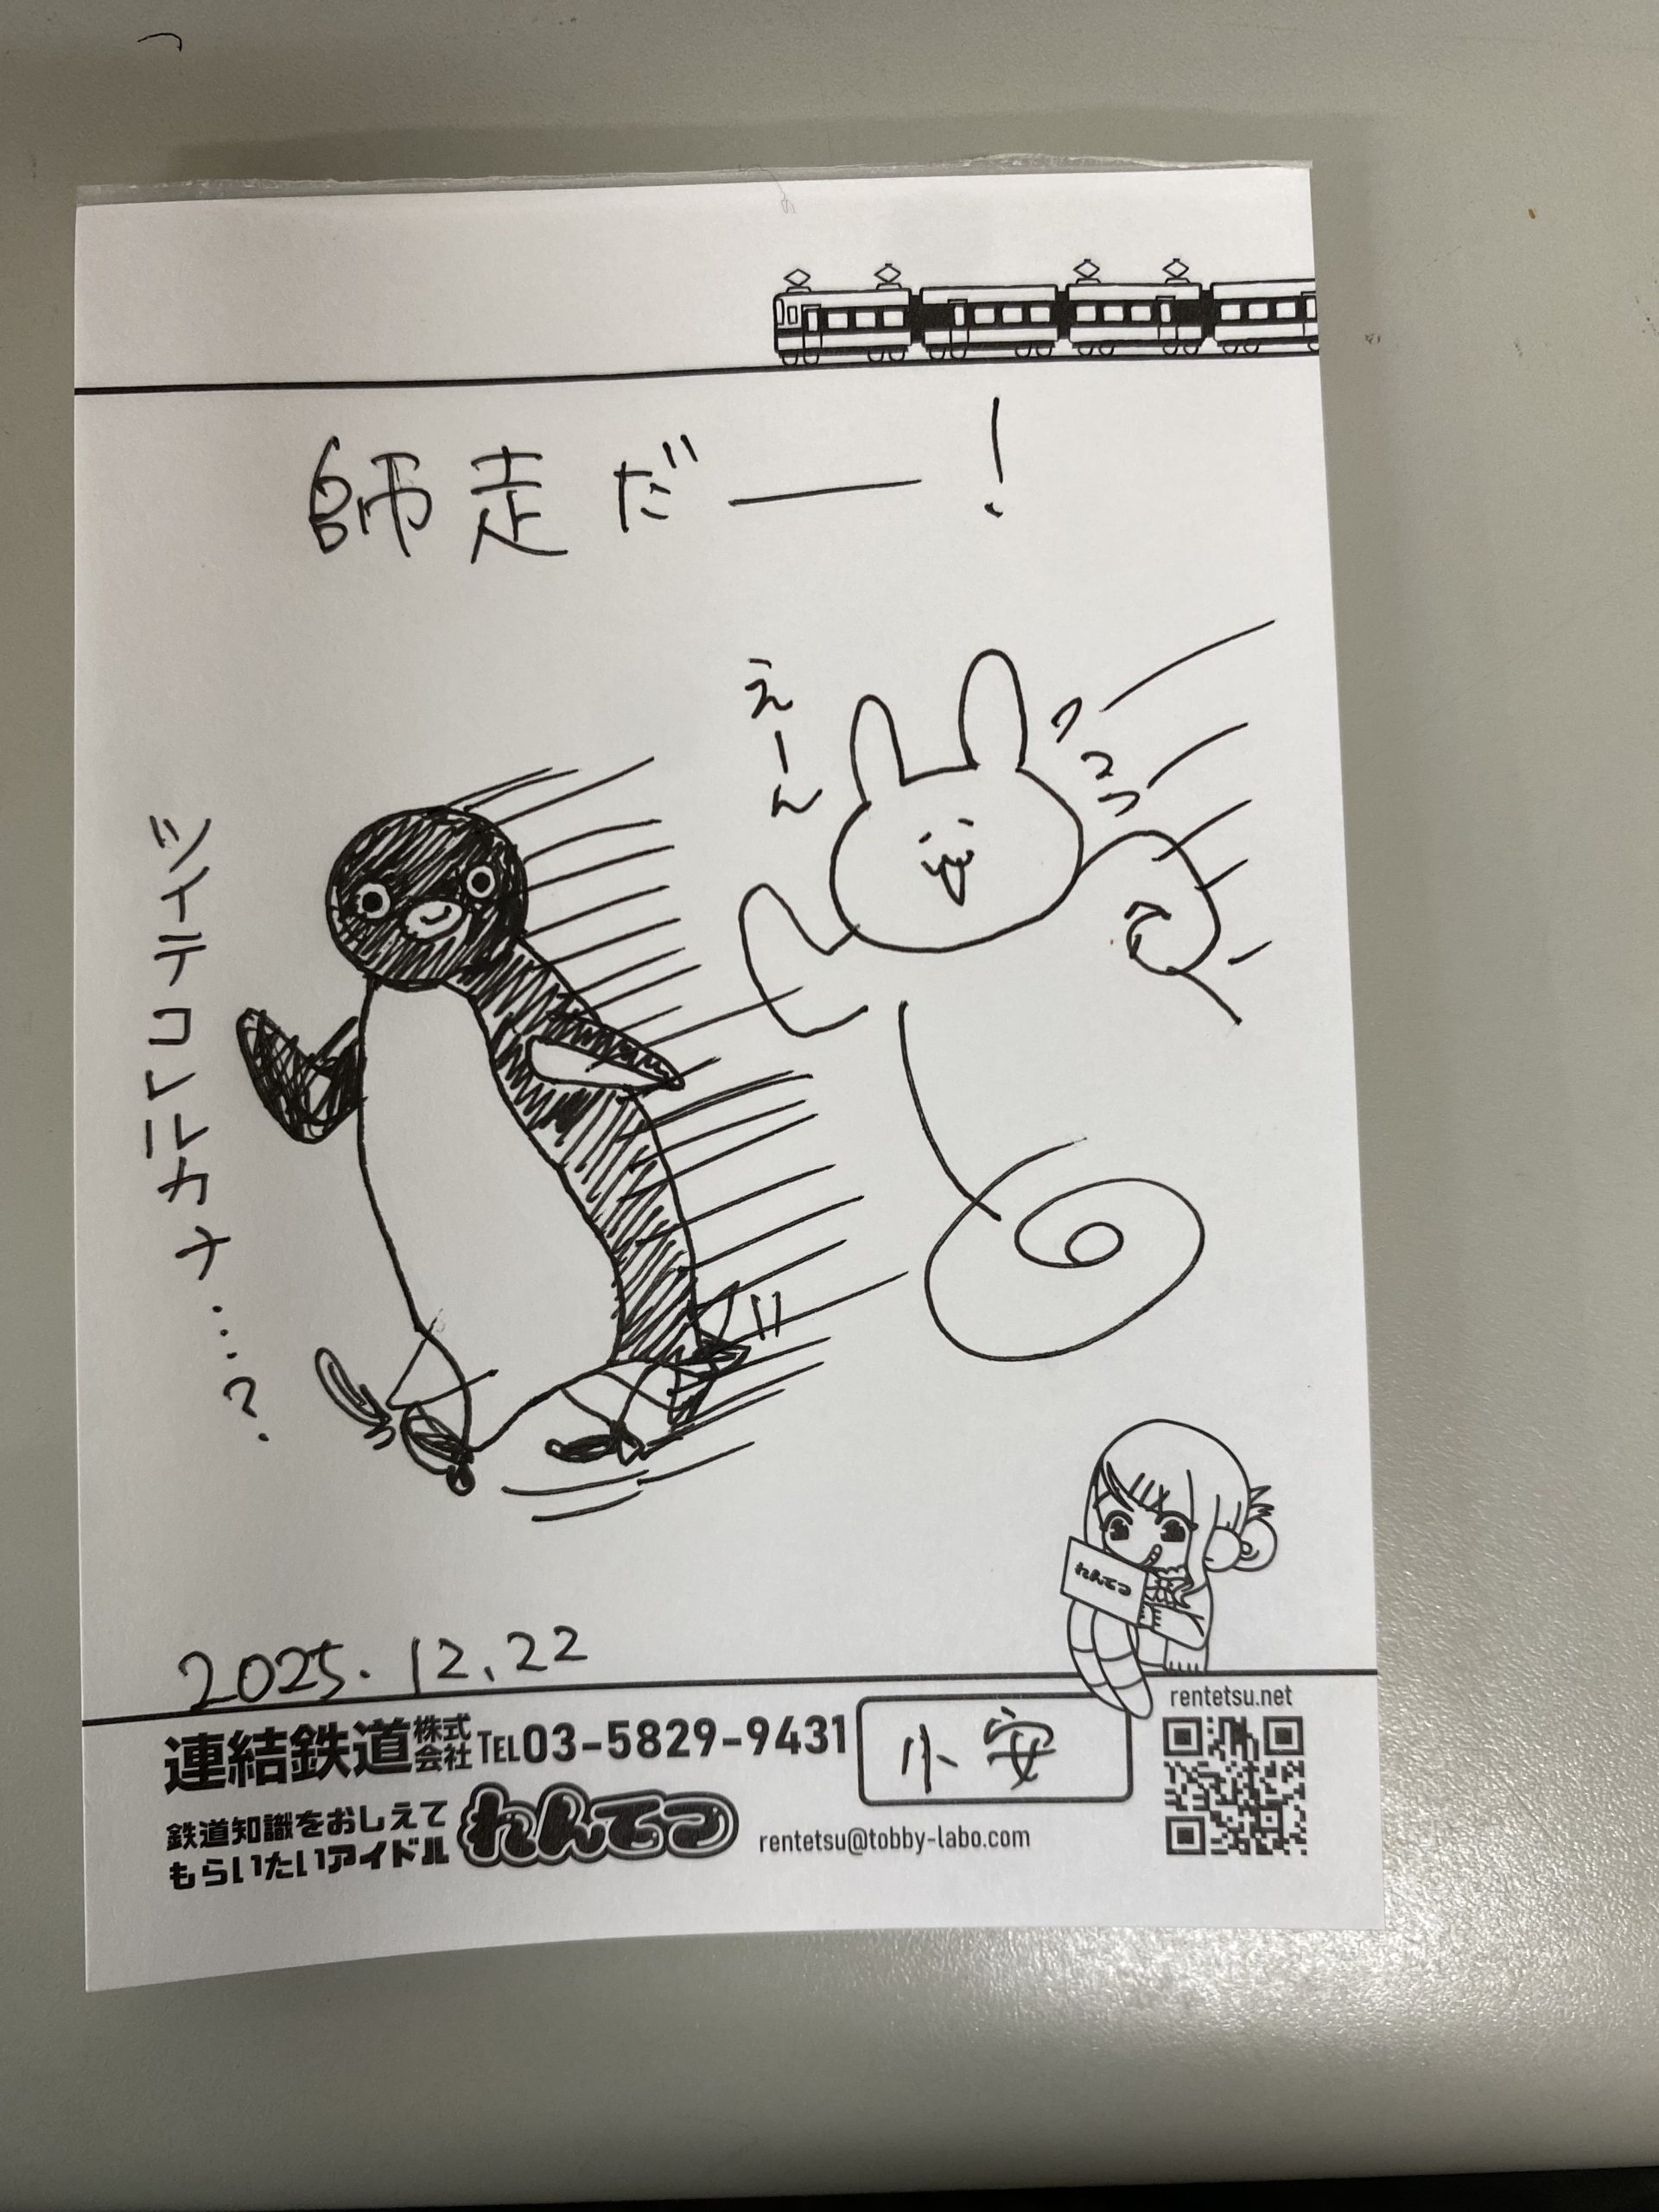 師走だー！
えーん
ツイテコレルカナ…？
れんてつ
2025.12.22
rentetsu.net
連結鉄道株式会社 TEL03-5829-9431
小安
鉄道知識をおしえて
もらいたいアイドル
れんてつ
rentetsu@tobby-labo.com